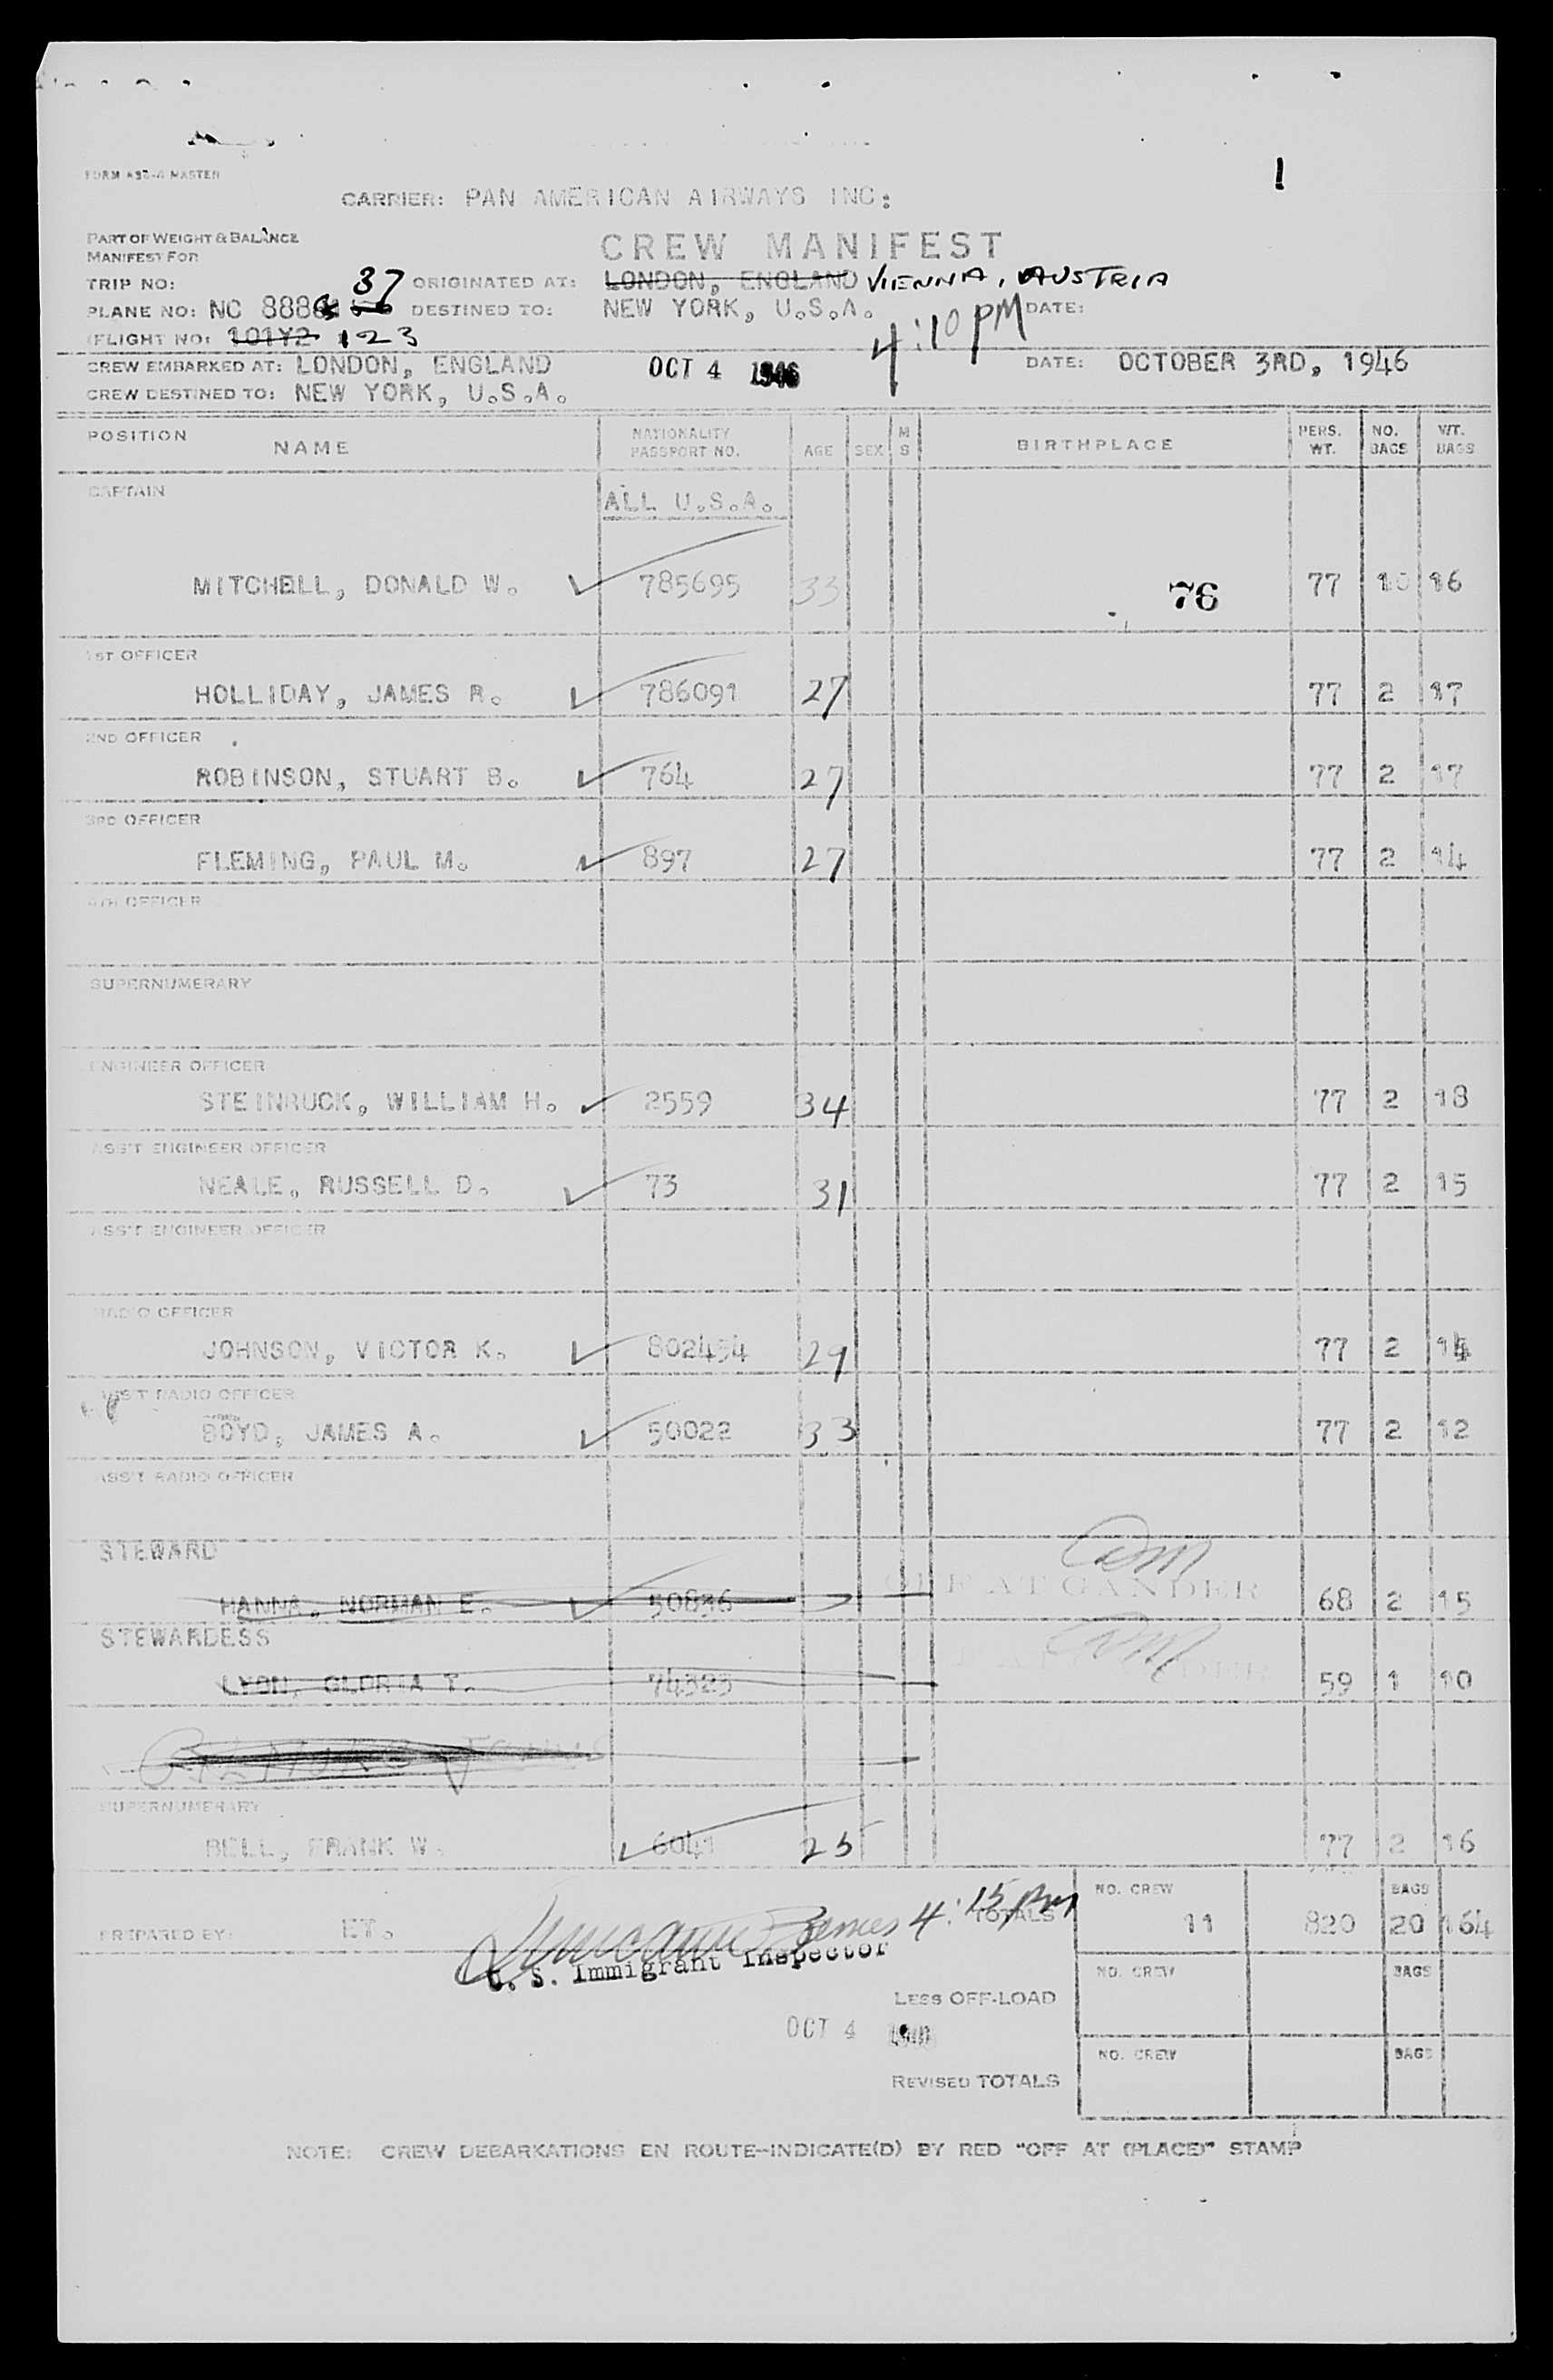 FORM MASTER
1
CARRIER: PAN AMERICAN AIRWAYS INC:
PART OF WEIGHT & BALANCE
MANIFEST FOR
CREW MANIFEST
TRIP NO: 37 ORIGINATED AT: LONDON, ENGLAND VIENNA, AUSTRIA
PLANE NO: NC DESTINED TO: NEW YORK, U.S.A. 4:10 PM DATE:
FLIGHT NO: 101Y2 123
CREW EMBARKED AT: LONDON, ENGLAND OCT 4 1946 DATE: OCTOBER 3RD, 1946
CREW DESTINED TO: NEW YORK, U.S.A.
POSITION NAME NATIONALITY PASSPORT NO. AGE SEX M S BIRTHPLACE PERS. WT. NO. BAGS WT. BAGS
CAPTAIN ALL U.S.A.
MITCHELL, DONALD W. 785695 33 76 77 16
1ST OFFICER
HOLLIDAY, JAMES R. 786091 27 77 2 17
2ND OFFICER
ROBINSON, STUART B. 764 27 77 2 17
3RD OFFICER
FLEMING, PAUL M. 897 27 77 2 14
4TH OFFICER
SUPERNUMERARY
ENGINEER OFFICER
STEINRUCK, WILLIAM H. 2559 34 77 2 18
ASS'T ENGINEER OFFICER
NEALE, RUSSELL D. 73 31 77 2 15
ASS'T ENGINEER OFFICER
RADIO OFFICER
JOHNSON, VICTOR K. 802454 29 77 2
ASS'T RADIO OFFICER
BOYD, JAMES A. 50022 33 77 2 12
ASS'T RADIO OFFICER
STEWARD
HANNA, NORMAN E. 50836 OFF AT GANDER 68 2 15
STEWARDESS
LYON, GLORIA T. 74323 59 1 10
SUPERNUMERARY
BELL, FRANK W. 6041 25 77 2 16
PREPARED BY: ET. 4:15 pm TOTALS NO. CREW 11 820 BAGS 20 164
U. S. Immigrant Inspector
LESS OFF-LOAD NO. CREW BAGS
OCT 4
REVISED TOTALS NO. CREW BAGS
NOTE: CREW DEBARKATIONS EN ROUTE-INDICATE(D) BY RED "OFF AT (PLACE)" STAMP